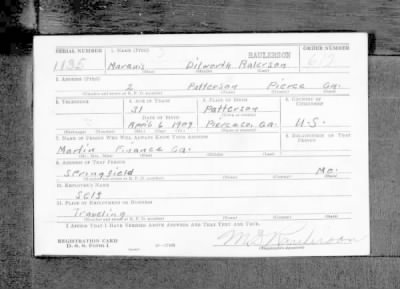 SERIAL NUMBER 1. NAME (Print) RAULERSON ORDER NUMBER
1135 Marquis Dilworth Ralerson 612
(First) (Middle) (Last)
2. ADDRESS (Print)
2 Patterson Pierce Ga.
(Number and street or R. F. D. number) (Town) (County) (State)
3. TELEPHONE 4. AGE IN YEARS 5. PLACE OF BIRTH 6. COUNTRY OF CITIZENSHIP
31 Patterson
DATE OF BIRTH (Town or county)
April 6 1909 Pierce co. Ga. U.S.
(Exchange) (Number) (Mo.) (Day) (Yr.) (State or country)
7. NAME OF PERSON WHO WILL ALWAYS KNOW YOUR ADDRESS 8. RELATIONSHIP OF THAT PERSON
Martin Finance Co.
(Mr., Mrs., Miss) (First) (Middle) (Last)
9. ADDRESS OF THAT PERSON
Springfield Mo.
(Number and street or R. F. D. number) (Town) (County) (State)
10. EMPLOYER'S NAME
Self
11. PLACE OF EMPLOYMENT OR BUSINESS
Traveling
(Number and street or R. F. D. number) (Town) (County) (State)
I AFFIRM THAT I HAVE VERIFIED ABOVE ANSWERS AND THAT THEY ARE TRUE.
REGISTRATION CARD
D. S. S. Form 1 16-17105 M D Raulerson
(Registrant's signature)